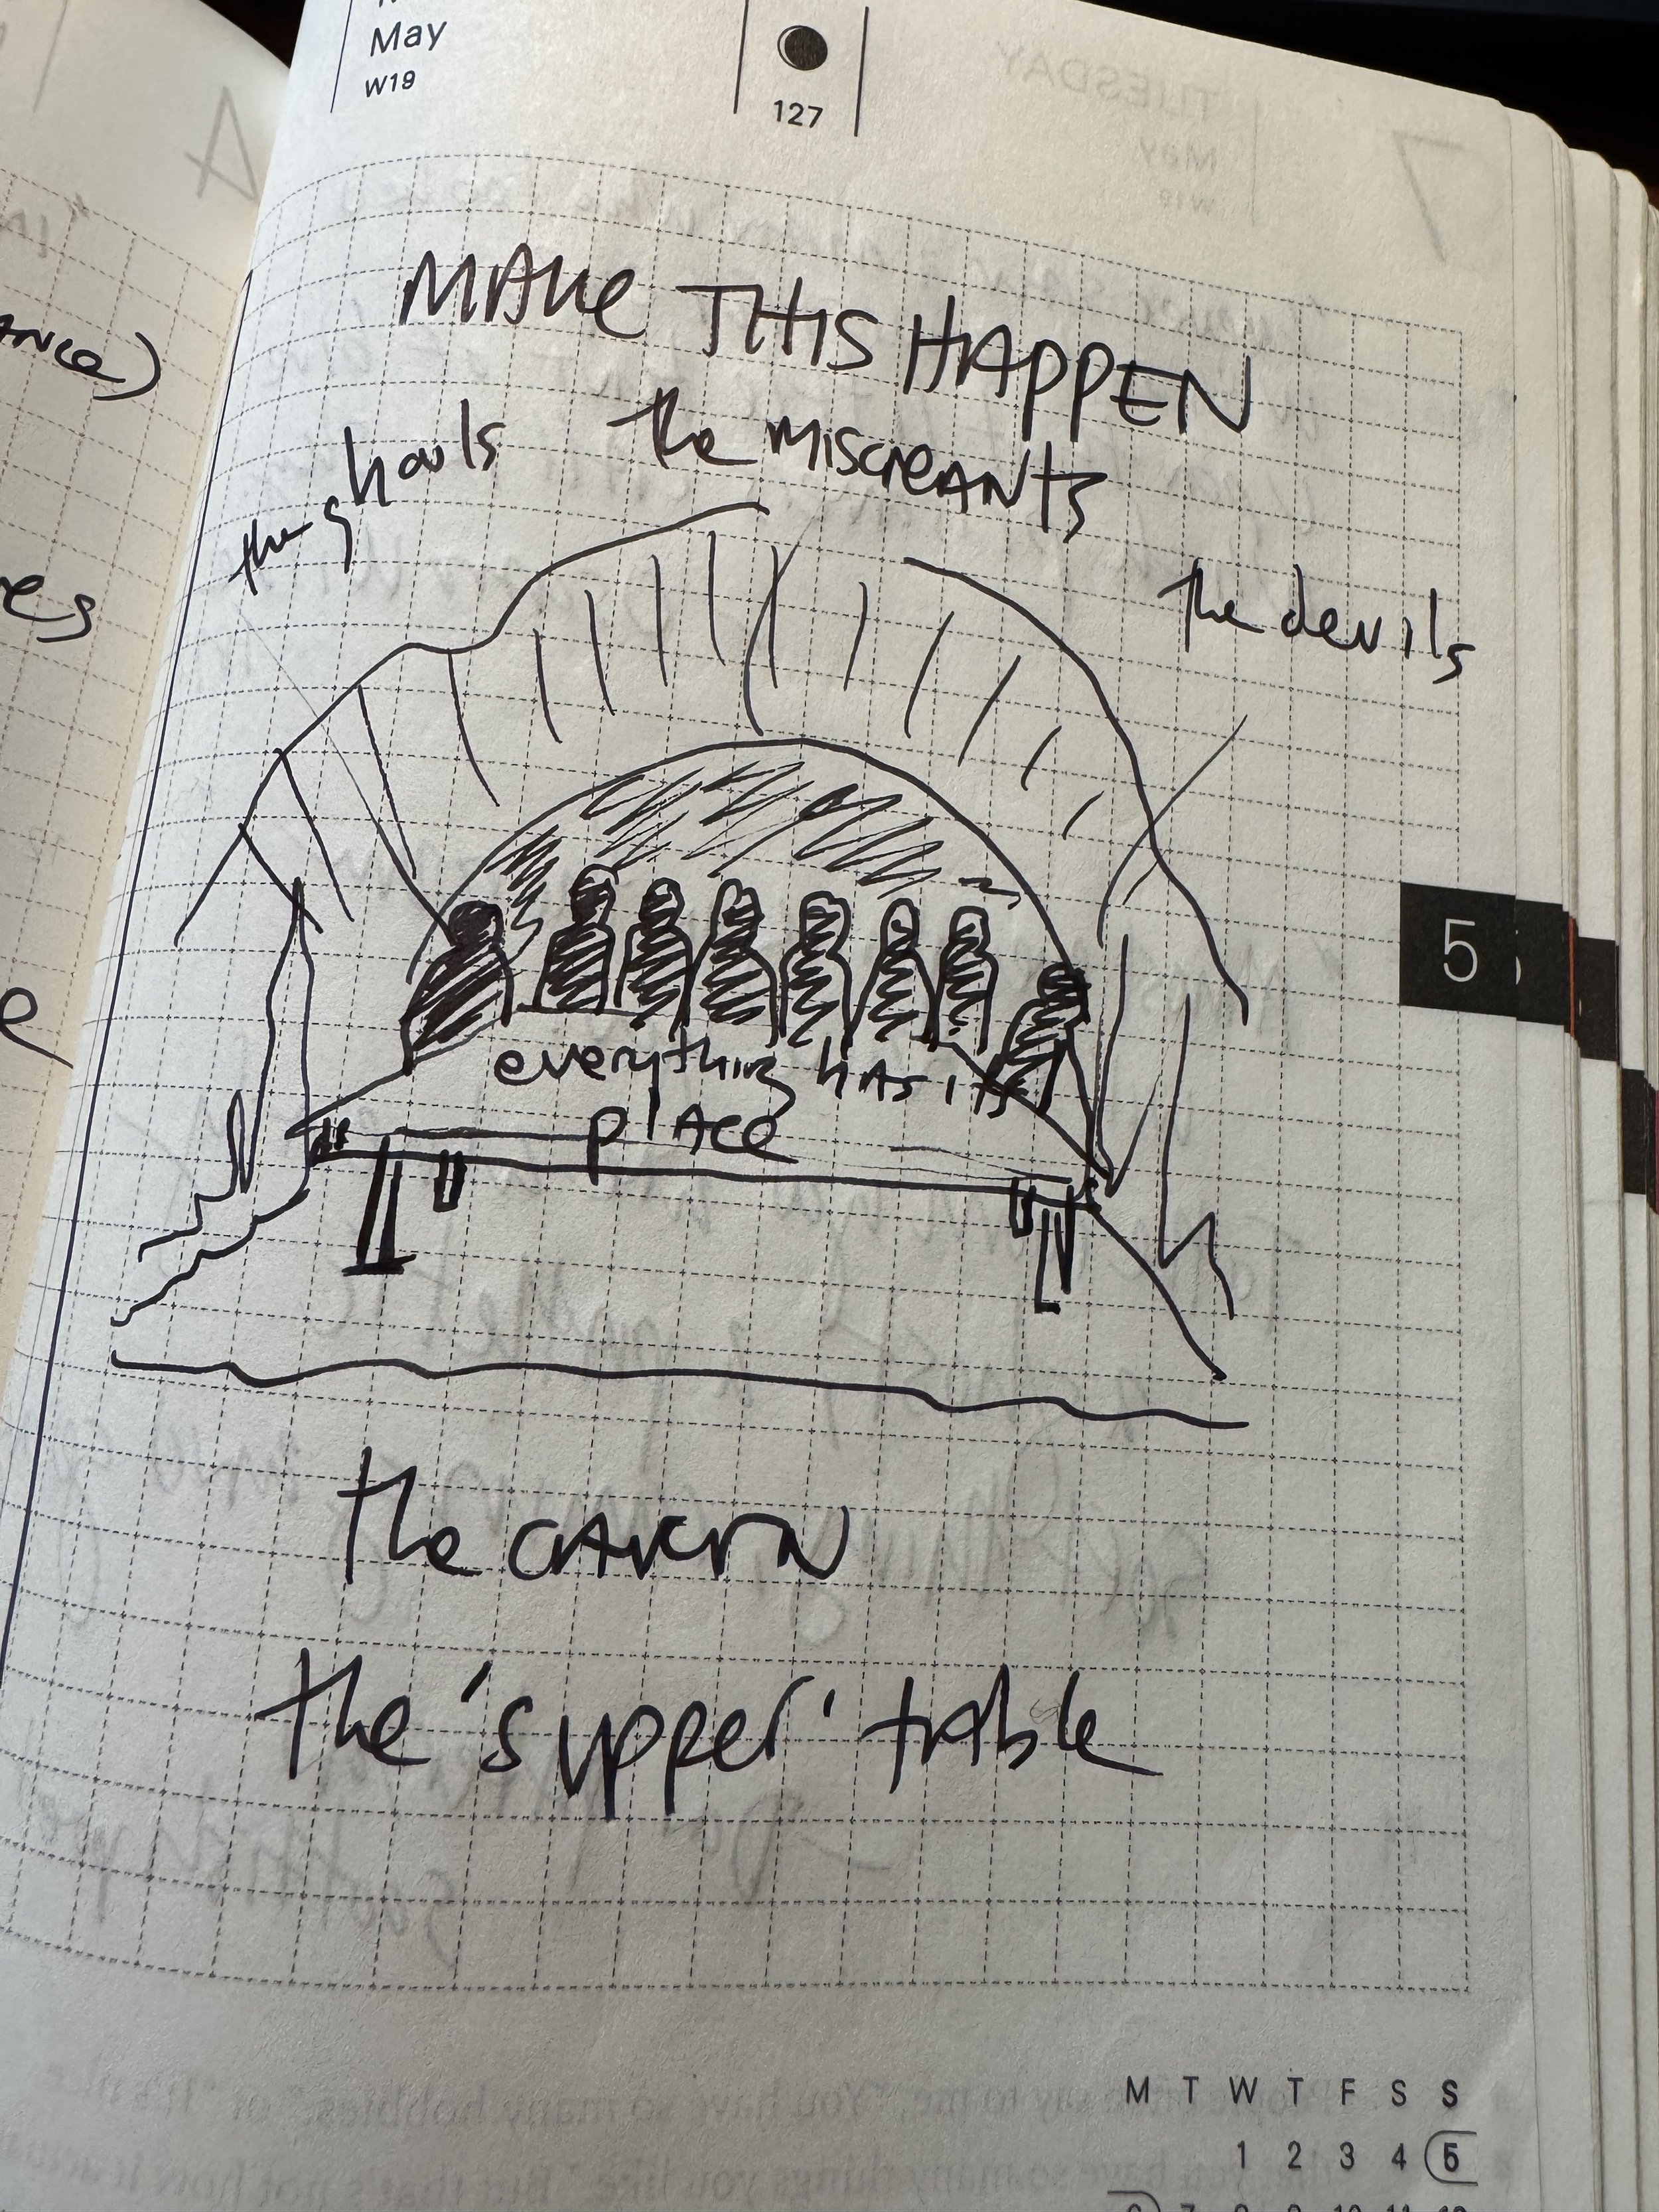 May
W19
127
MAKE THIS HAPPEN
the ghouls the miscreants
the devils
5
everything has its
place
the cavern
the 'supper' table
M T W T F S S
1 2 3 4 5